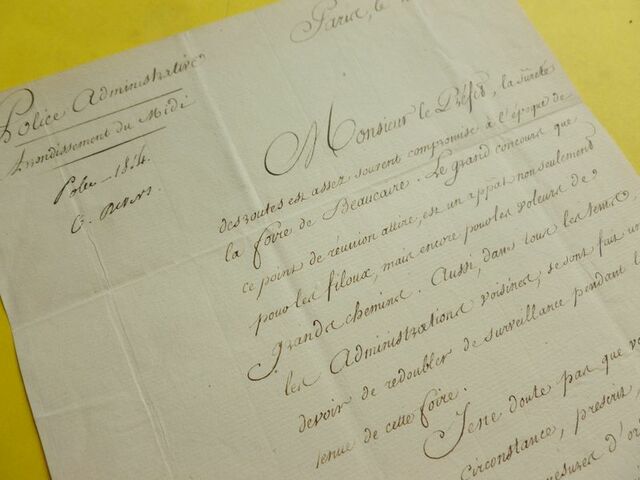 Paris, le
Police Administrative
Arrondissement du Midi
Police - 1814.
Monsieur le Préfet, la sûreté
des routes est assez souvent compromise à l'époque de
la foire de Beaucaire. Le grand concours que
ce point de réunion attire, est un appât non seulement
pour les filoux, mais encore pour les voleurs de
grands chemins. Aussi, dans tous les tems,
les Administrations voisines, se sont fait un
devoir de redoubler de surveillance pendant la
tenue de cette foire.
Je ne doute pas que vo
circonstance, prescrit,
mesures d'or